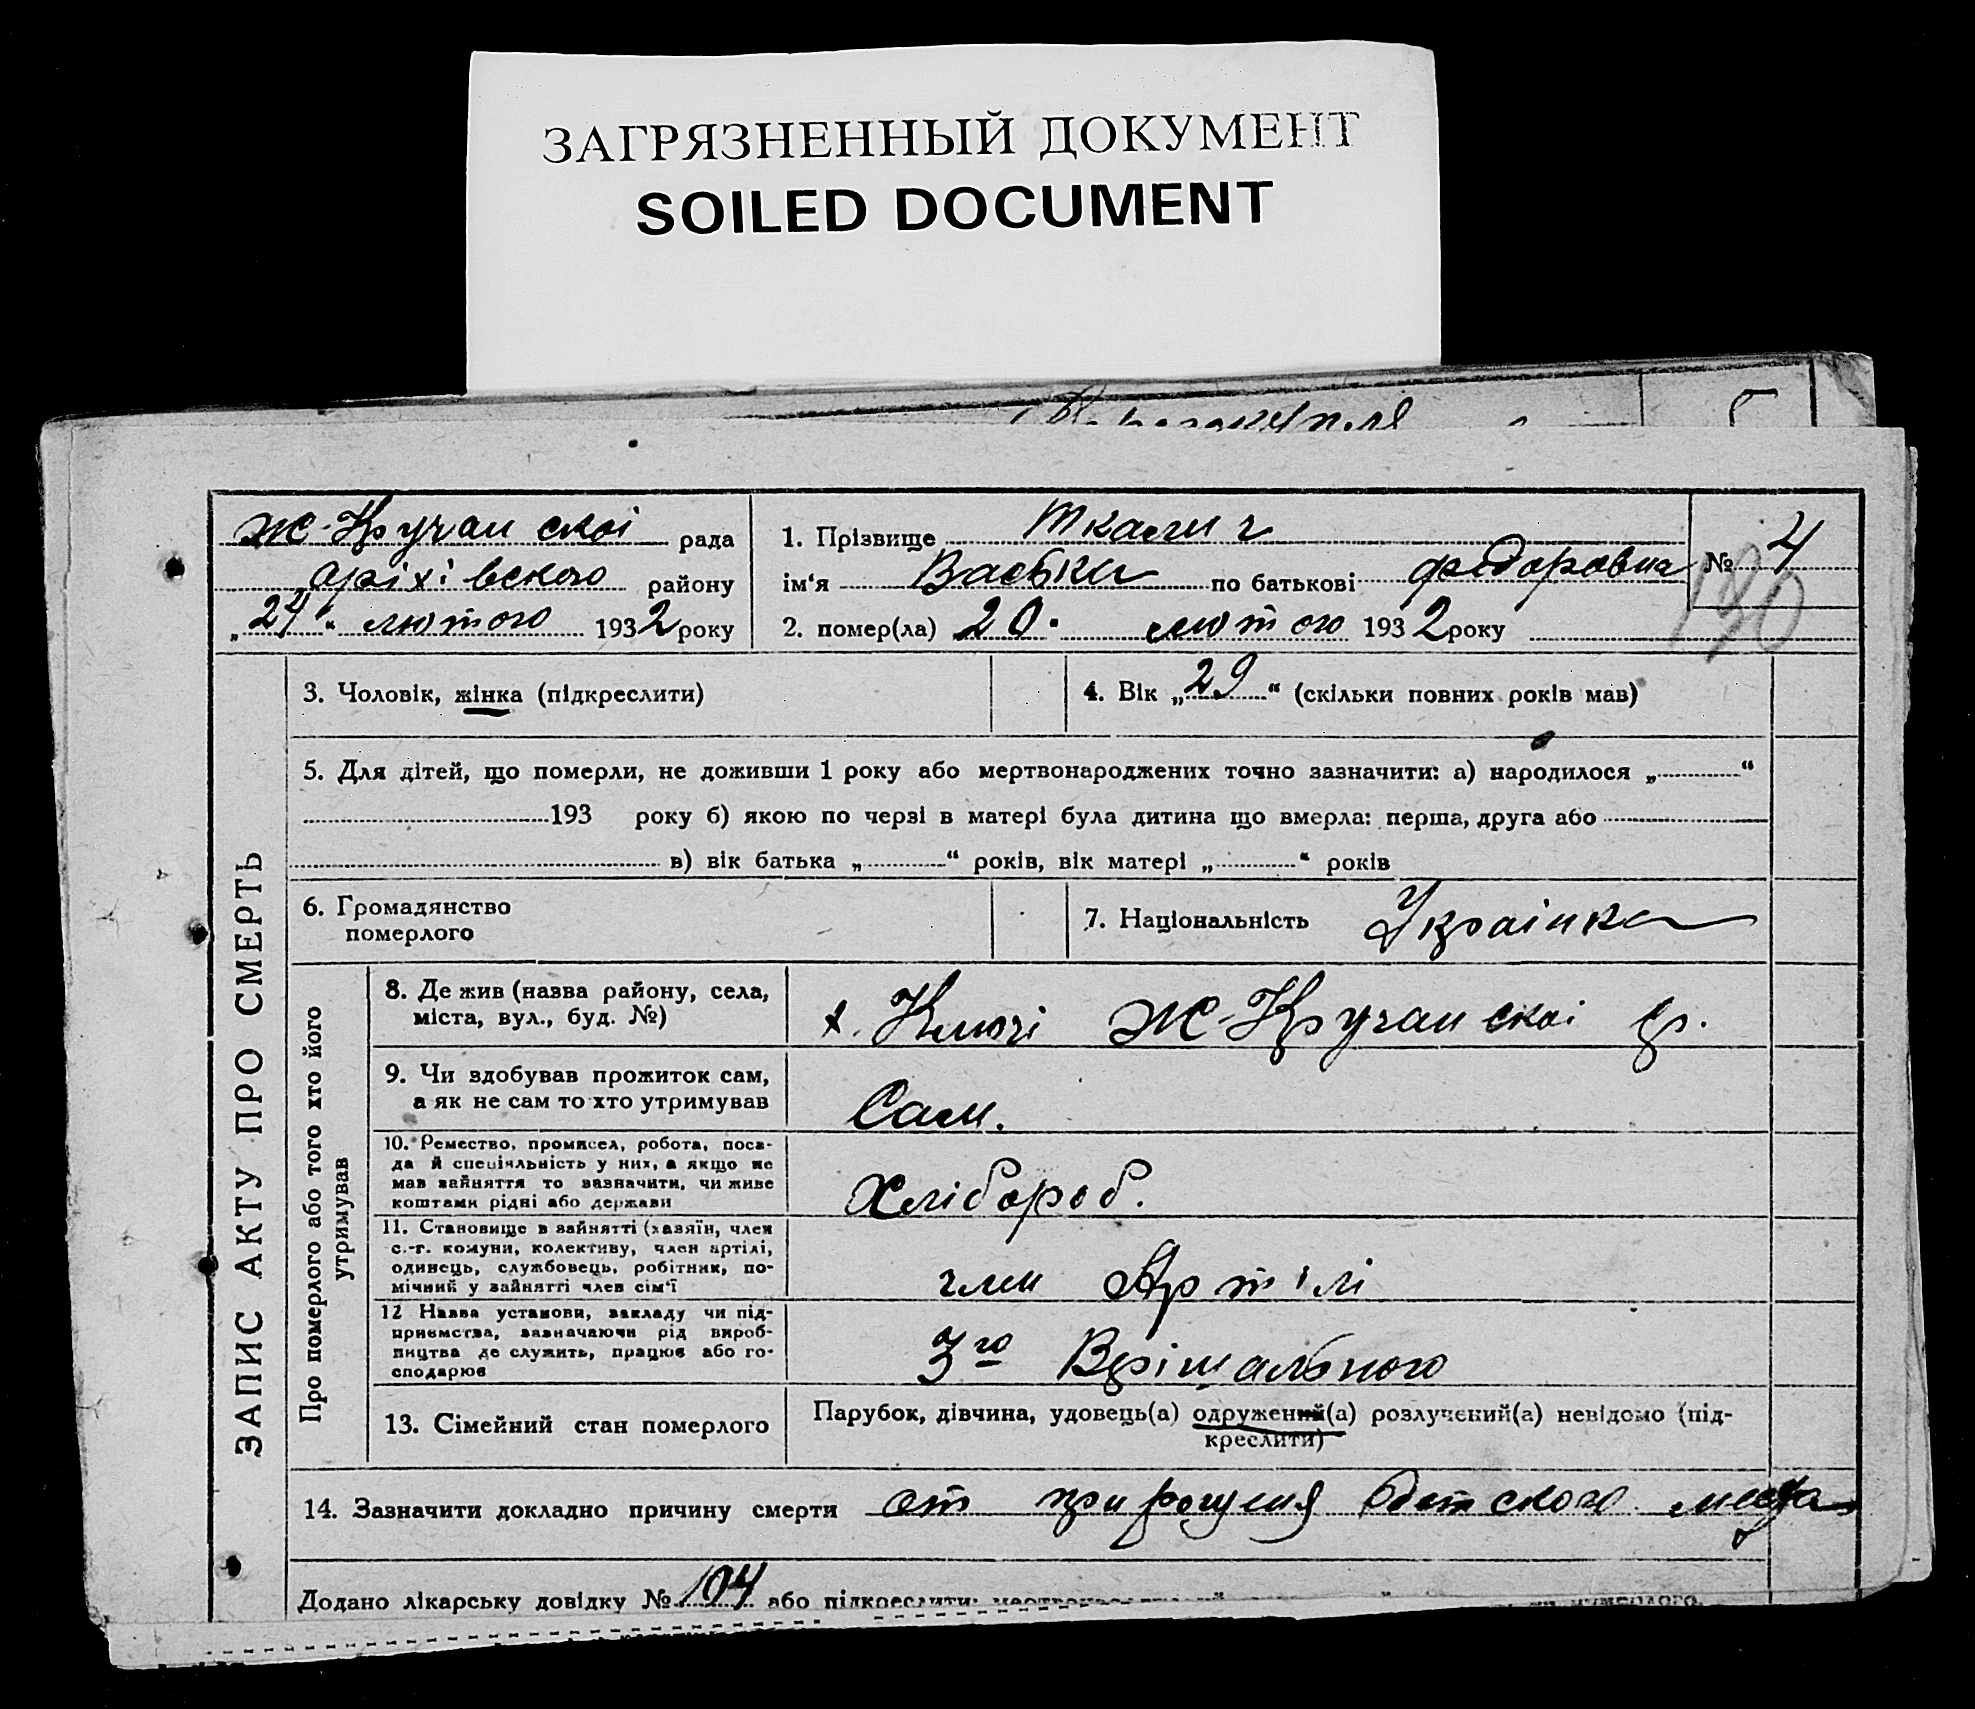 ЗАГРЯЗНЕННЫЙ ДОКУМЕНТ
SOILED DOCUMENT
Ж-Кручанскоі рада
оріхівского району
„24“ лютого 1932 року
1. Прізвище Ткалич
ім‘я Васька по батькові федоровна
2. помер(ла) 20. лютого 1932 року
№ 4
130
ЗАПИС АКТУ ПРО СМЕРТЬ
3. Чоловік, жінка (підкреслити)
4. Вік „29“ (скільки повних років мав)
5. Для дітей, що померли, не доживши 1 року або мертвонароджених точно зазначити: а) народилося „ “
193 року б) якою по черзі в матері була дитина що вмерла: перша, друга або
в) вік батька „ “ років, вік матері „ “ років
6. Громадянство
померлого
7. Національність Украінка
Про померлого або того хто його
утримував
8. Де жив (назва району, села,
міста, вул., буд. №)
х. Ключі Ж-Кручанскоі р.
9. Чи здобував прожиток сам,
а як не сам то хто утримував
Сам.
10. Ремество, промисел, робота, поса-
да й спеціяльність у них, а якщо не
мав зайняття то зазначити, чи живе
коштами рідні або держави
Хлібороб.
11. Становище в зайнятті (хазяїн, член
с.-г. комуни, колективу, член артілі,
одинець, службовець, робітник, по-
мічний у зайнятті член сім‘ї
член Артілі
12 Назва установи, закладу чи під-
приємства, зазначаючи рід вироб-
ництва де служить, працює або го-
сподарює
3го Врішального
13. Сімейний стан померлого
Парубок, дівчина, удовець(а) одружений(а) розлучений(а) невідомо (під-
креслити)
14. Зазначити докладно причину смерти от прирощения детского места
Додано лікарську довідку № 104 або підкреслити: